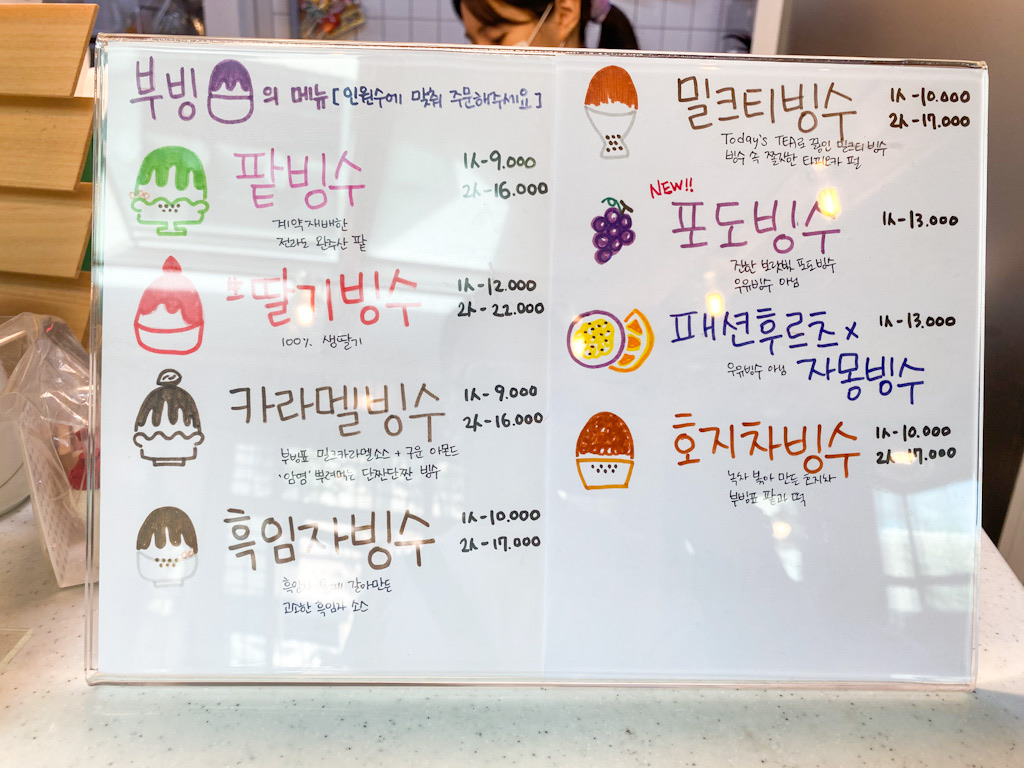 부빙 의 메뉴 [인원수에 맞춰 주문해주세요]
팥빙수
1人-9.000
2人-16.000
계약재배한
전라도 완주산 팥
生딸기빙수
1人-12.000
2人-22.000
100% 생딸기
카라멜빙수
1人-9.000
2人-16.000
부빙표 밀크카라멜소스 + 구운 아몬드
뿌려먹는 단짠단짠 빙수
흑임자빙수
1人-10.000
2人-17.000
흑임자 갈아만든
고소한 흑임자 소스
밀크티빙수
1人-10.000
2人-17.000
Today's TEA로 끓인 밀크티빙수
빙수 속 쫄깃한 타피오카 펄
NEW!!
포도빙수
1人-13.000
진한 보랏빛 포도빙수
우유빙수 아님
패션후르츠x
자몽빙수
1人-13.000
우유빙수 아님
호지차빙수
1人-10.000
2人-17.000
녹차 볶아 만든 호지차
부빙표 팥과 떡